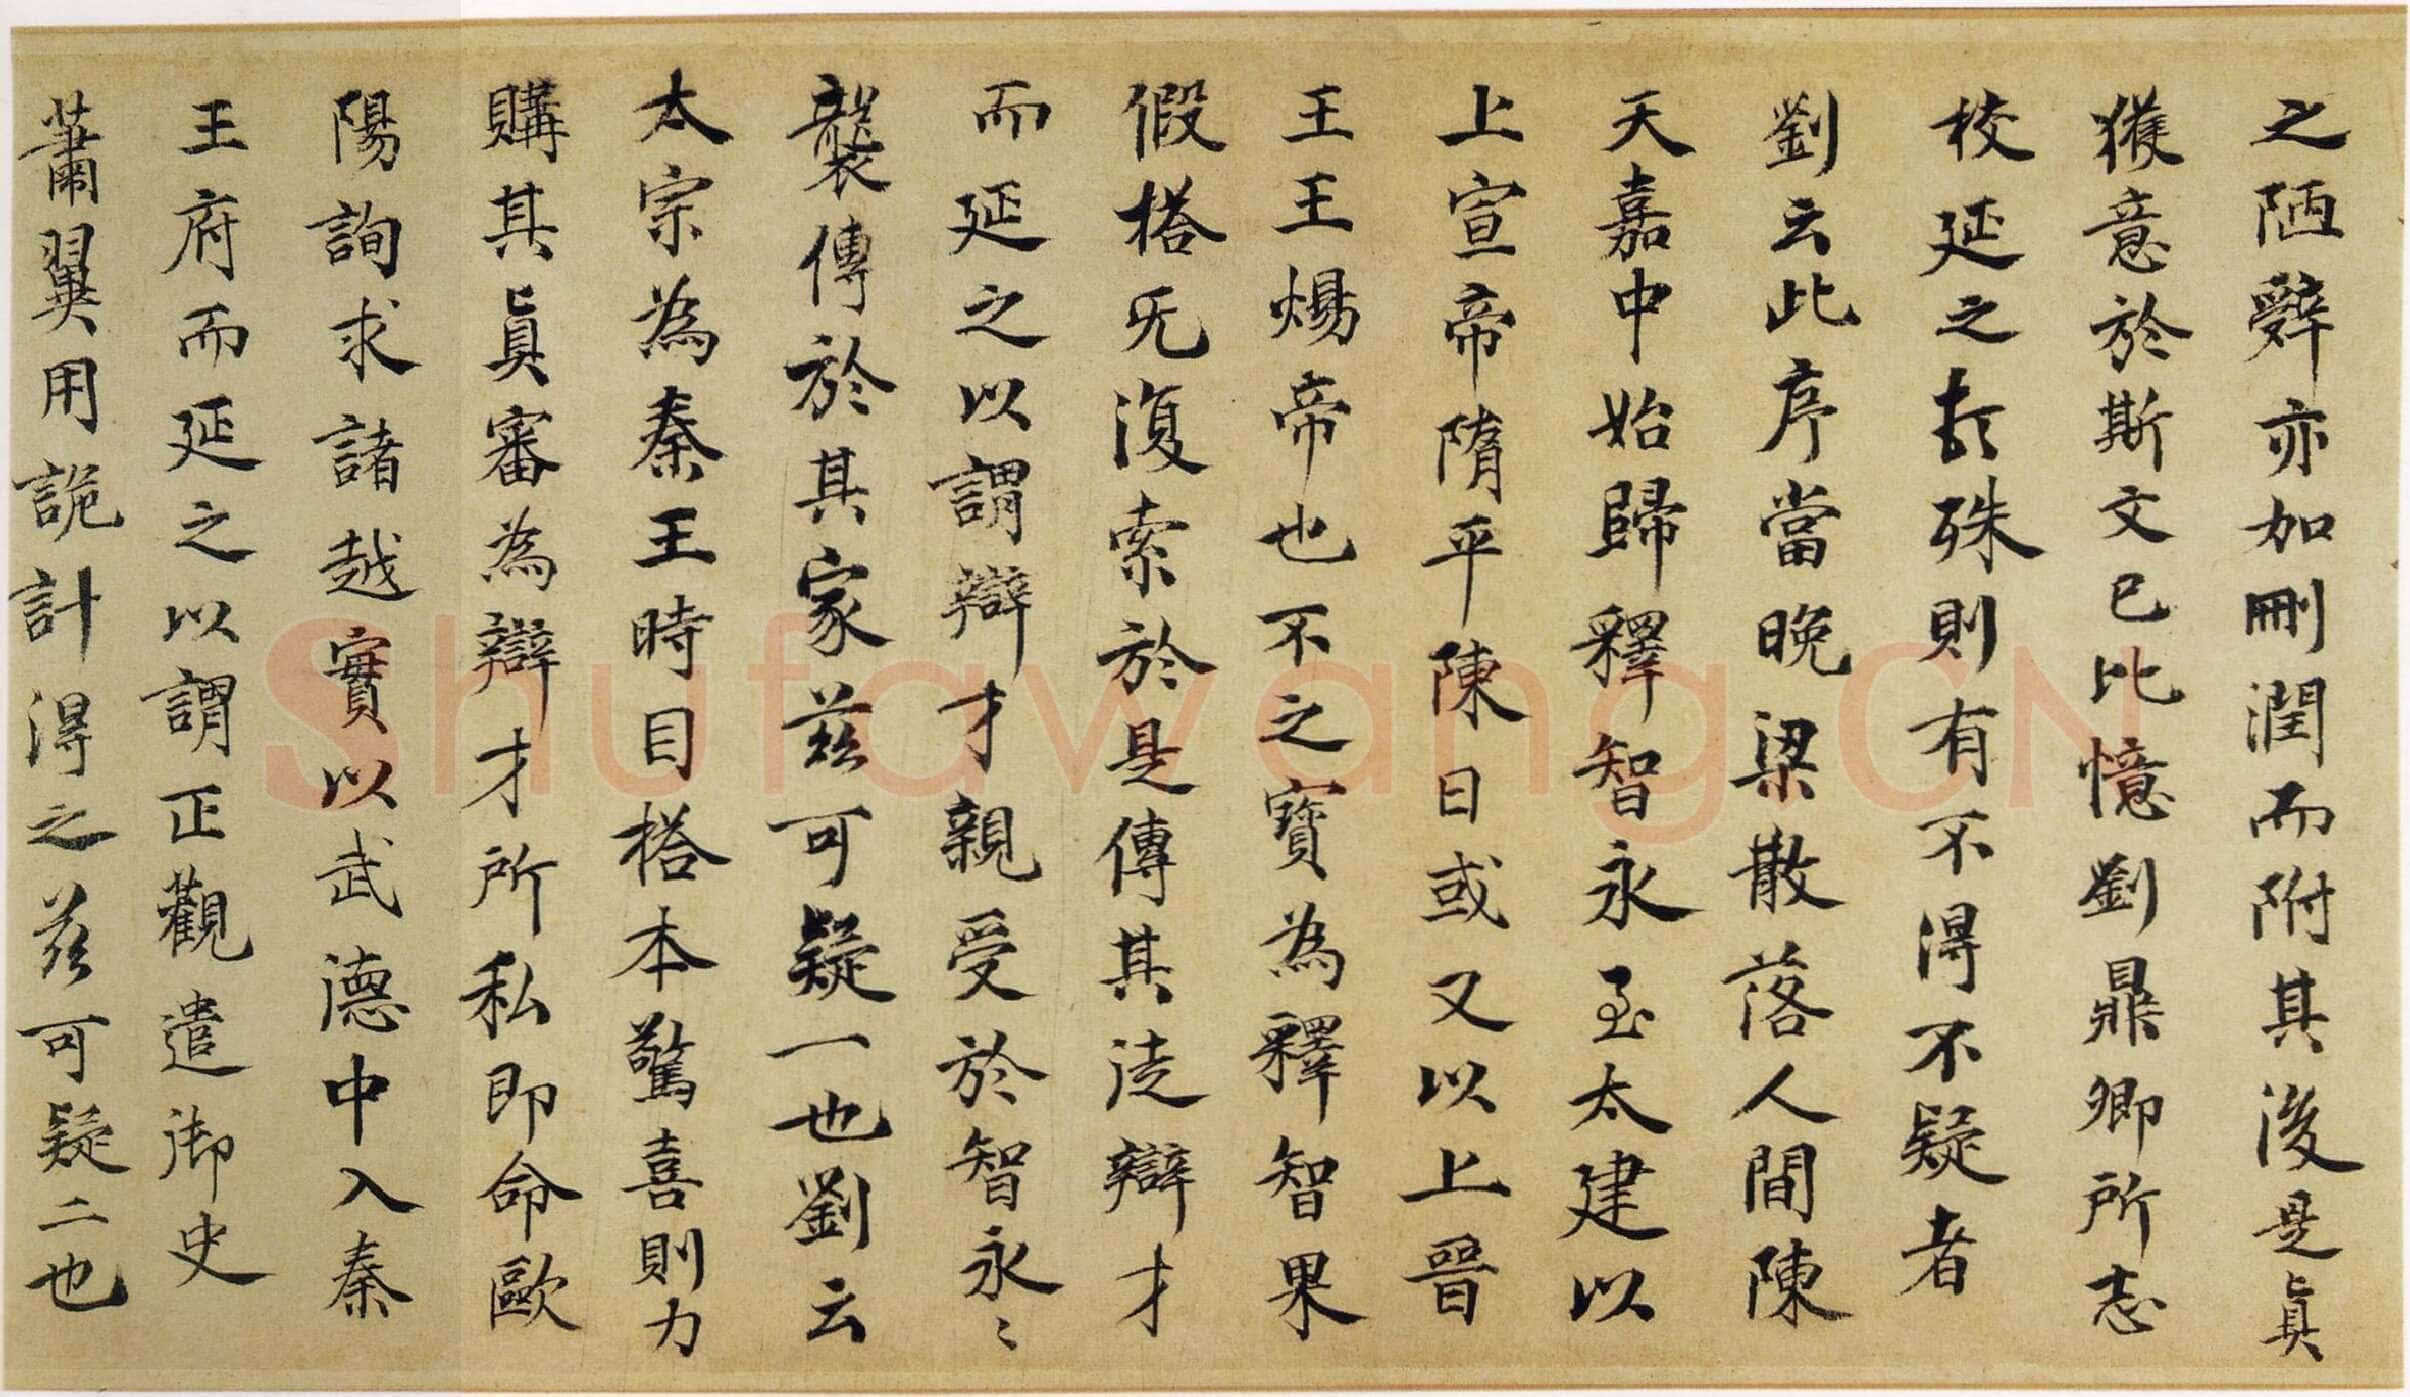 之陋辤亦加刪潤而附其後是真
獲意於斯文已比憶劉鼎卿所志
校延之殊則有不得不疑者
劉云此序當晚梁散落人間陳
天嘉中始歸釋智永至太建以
上宣帝隋平陳日或又以上晉
王王煬帝也不之寶為釋智果
假搭旡復索於是傳其徒辯才
而延之以謂辯才親受於智永〻
襲傳於其家茲可疑一也劉云
太宗為秦王時目搭本驚喜則力
購其真審為辯才所私即命歐
陽詢求諸越實以武德中入秦
王府而延之以謂正觀遣御史
蕭翼用詭計得之茲可疑二也
Shufawang.CN